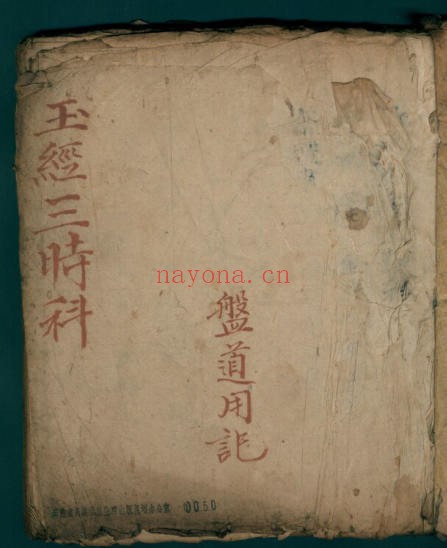 玉經三時科
盤道用記
nayona.cn
0050